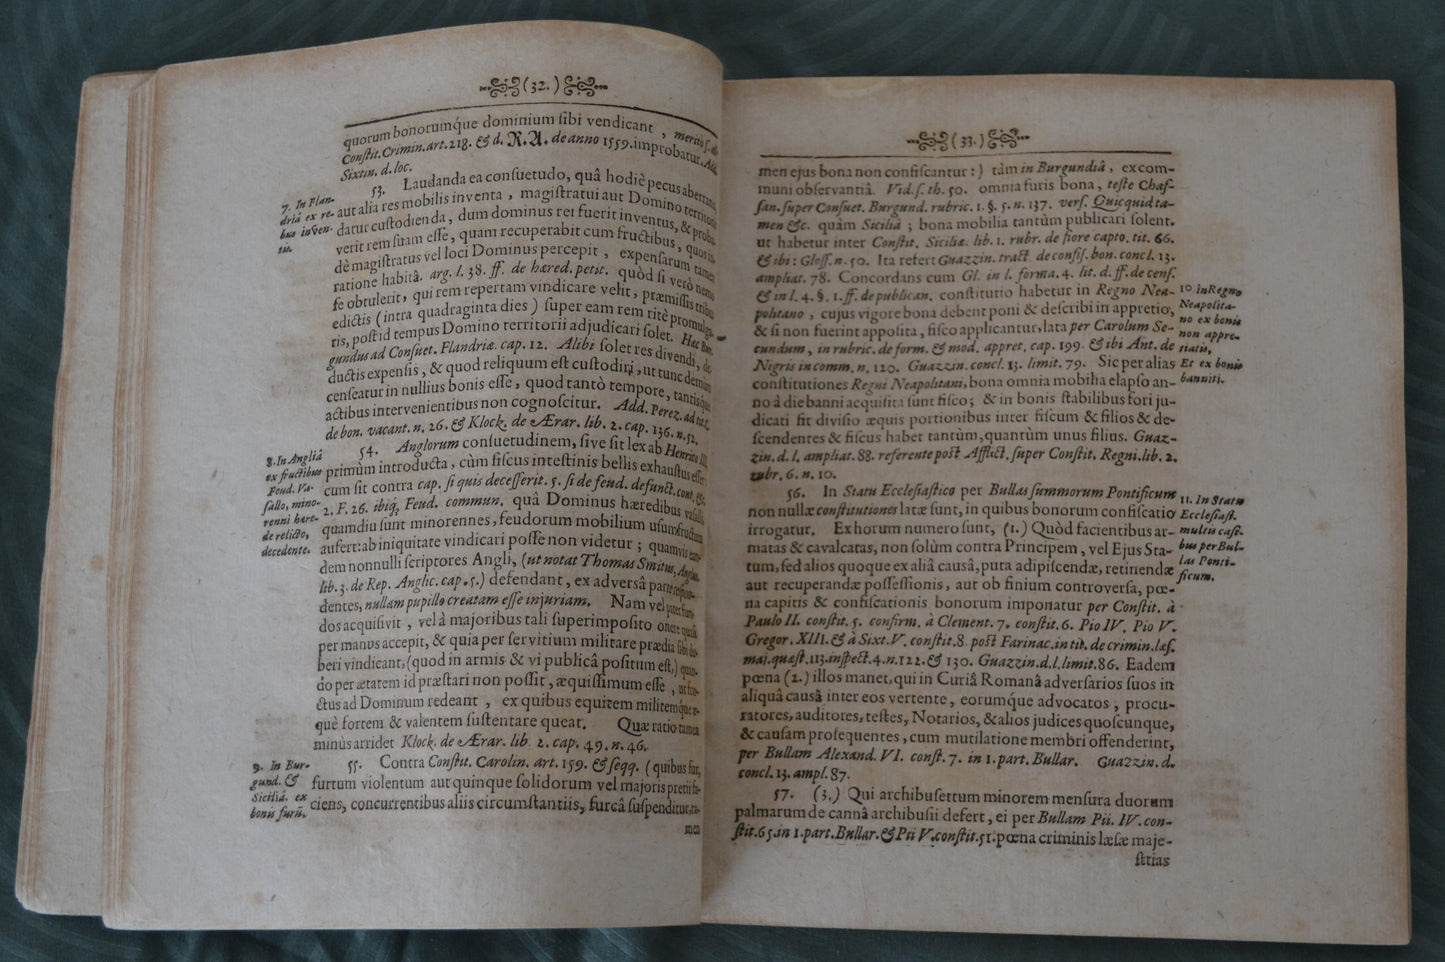 (32.)
quorum bonorumq́ue dominium ſibi vendicant, meritò ſ. ab
Conſtit. Crimin. art. 218. & d. R. A. de anno 1559. improbatur. Add.
Sixtin. d. loc.
7. In Flan-
driâ ex re-
bus inven-
tis.
53. Laudanda ea conſuetudo, quâ hodiè pecus aberrans,
aut alia res mobilis inventa, magiſtratui aut Domino territorii
datur cuſtodienda, dum dominus rei fuerit inventus, & proba-
verit rem ſuam eſſe, quam recuperabit cum fructibus, quos in-
dè magiſtratus vel loci Dominus percepit, expenſarum tamen
ratione habitâ. arg. l. 38. ff. de hæred. petit. quòd ſi verò nemo
ſe obtulerit, qui rem repertam vindicare velit, præmiſſis tribus
edictis (intra quadraginta dies) ſuper eam rem ritè promulga-
tis, poſt id tempus Domino territorii adjudicari ſolet. Hæc Bur-
gundus ad Conſuet. Flandriæ. cap. 12. Alibi ſolet res divendi, de-
ductis expenſis, & quod reliquum eſt cuſtodiri, ut tunc demùm
cenſeatur in nullius bonis eſſe, quod tantò tempore, tantisque
actibus intervenientibus non cognoſcitur. Add. Perez. ad tit. C.
de bon. vacant. n. 26. & Klock. de Ærar. lib. 2. cap. 136. n. 52.
8. In Angliâ
ex fructibus
Feud. Va-
ſallo, mino-
renni hære-
de relicto,
decedente.
54. Anglorum conſuetudinem, ſive ſit lex ab Henrico III.
primùm introducta, cùm fiſcus inteſtinis bellis exhauſtus eſſet
cum ſit contra cap. ſi quis deceſſerit. 5. ſi de feud. defunct. cont. &c.
2. F. 26. ibiq́, Feud. commun. quâ Dominus hæredibus vaſalli,
quamdiu ſunt minorennes, feudorum mobilium uſumfructum
aufert: ab iniquitate vindicari poſſe non videtur; quamvis ean-
dem nonnulli ſcriptores Angli, (ut notat Thomas Smitus, Anglus.
lib. 3. de Rep. Anglic. cap. 5.) defendant, ex adversâ parte reſpon-
dentes, nullam pupillo creatam eſſe injuriam. Nam vel pater fun-
dos acquiſivit, vel à majoribus tali ſuperimpoſito onere quaſi
per manus accepit, & quia per ſervitium militare prædia ſibi de-
beri vindicant, (quod in armis & vi publicâ poſitum eſt,) quan-
do per ætatem id præſtari non poſſit, æquiſſimum eſſe, ut fru-
ctus ad Dominum redeant, ex quibus equitem militemque æ-
què fortem & valentem ſuſtentare queat. Quæ ratio tamen
minùs arridet Klock. de Ærar. lib. 2. cap. 49. n. 46.
9. In Bur-
gund. &
Siciliâ. ex
bonis furis.
55. Contra Conſtit. Carolin. art. 159. & ſeqq. (quibus fur,
furtum violentum aut quinque ſolidorum vel majoris pretii fa-
ciens, concurrentibus aliis circumſtantiis, furcâ ſuſpenditur, ta-
men
(33.)
men ejus bona non confiſcantur:) tàm in Burgundiâ, ex com-
muni obſervantiâ. Vid. ſ. th. 50. omnia furis bona, teſte Chaſ-
ſan. ſuper Conſuet. Burgund. rubric. 1. §. 5. n. 137. verſ. Quicquid ta-
men &c. quàm Siciliâ; bona mobilia tantùm publicari ſolent.
ut habetur inter Conſtit. Siciliæ. lib. 1. rubr. de fiore capto. tit. 66.
& ibi: Gloſſ. n. 50. Ita refert Guazzin. tract. de confiſ. bon. concl. 13.
ampliat. 78. Concordans cum Gl. in l. forma. 4. lit. d. ff. de cenſ.
& in l. 4. §. 1. ff. de publican. conſtitutio habetur in Regno Nea-
politano, cujus vigore bona debent poni & deſcribi in appretio,
& ſi non fuerint appoſita, fiſco applicantur, lata per Carolum Se-
cundum, in rubric. de form. & mod. appret. cap. 199. & ibi Ant. de
Nigris in comm. n. 120. Guazzin. concl. 13. limit. 79. Sic per alias
conſtitutiones Regni Neapolitani, bona omnia mobilia elapſo an-
no à die banni acquiſita ſunt fiſco; & in bonis ſtabilibus fori ju-
dicati fit diviſio æquis portionibus inter fiſcum & filios & de-
ſcendentes & fiſcus habet tantùm, quantum unus filius. Guaz-
zin. d. l. ampliat. 88. referente poſt Afflict. ſuper Conſtit. Regni. lib. 2.
rubr. 6. n. 10.
10 in Regno
Neapolita-
no ex bonis
non appre-
tiatis,
Et ex bonis
banniti.
56. In Statu Eccleſiaſtico per Bullas ſummorum Pontificum
non nullæ conſtitutiones latæ ſunt, in quibus bonorum confiſcatio
irrogatur. Ex horum numero ſunt, (1.) Quòd facientibus ar-
matas & cavalcatas, non ſolùm contra Principem, vel Ejus Sta-
tum, ſed alios quoque ex aliâ causâ, puta adipiſcendæ, retinendæ
aut recuperandæ poſſeſſionis, aut ob finium controverſa, pœ-
na capitis & confiſcationis bonorum imponatur per Conſtit. à
Paulo II. conſtit. 5. confirm. à Clement. 7. conſtit. 6. Pio IV. Pio V.
Gregor. XIII. & à Sixt. V. conſtit. 8. poſt Farinac. in tit. de crimin. læſ.
maj. quæſt. 113. inſpect. 4. n. 122. & 130. Guazzin. d. l. limit. 86. Eadem
pœna (2.) illos manet, qui in Curiâ Romanâ adverſarios ſuos in
aliquâ causâ inter eos vertente, eorumq́ue advocatos, procu-
ratores, auditores, teſtes, Notarios, & alios judices quoſcunque,
& cauſam proſequentes, cum mutilatione membri offenderint,
per Bullam Alexand. VI. conſt. 7. in 1. part. Bullar. Guazzin. d.
concl. 13. ampl. 87.
11. In Statu
Eccleſiaſt.
multis caſi-
bus per Bul-
las Ponti-
ficum.
57. (3.) Qui archibuſettum minorem menſura duorum
palmarum de cannâ archibuſii defert, ei per Bullam Pii. IV. con-
ſtit. 65. in 1. part. Bullar. & Pii V. conſtit. 51. pœna criminis læſæ maje-
ſtias